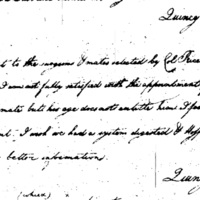 Quincy
d to the surgeons & mates selected by Col
I am not fully satisfied with the appointments
mate but his age does not entitle him I
I wish we had a system digested &
better information.
Quin